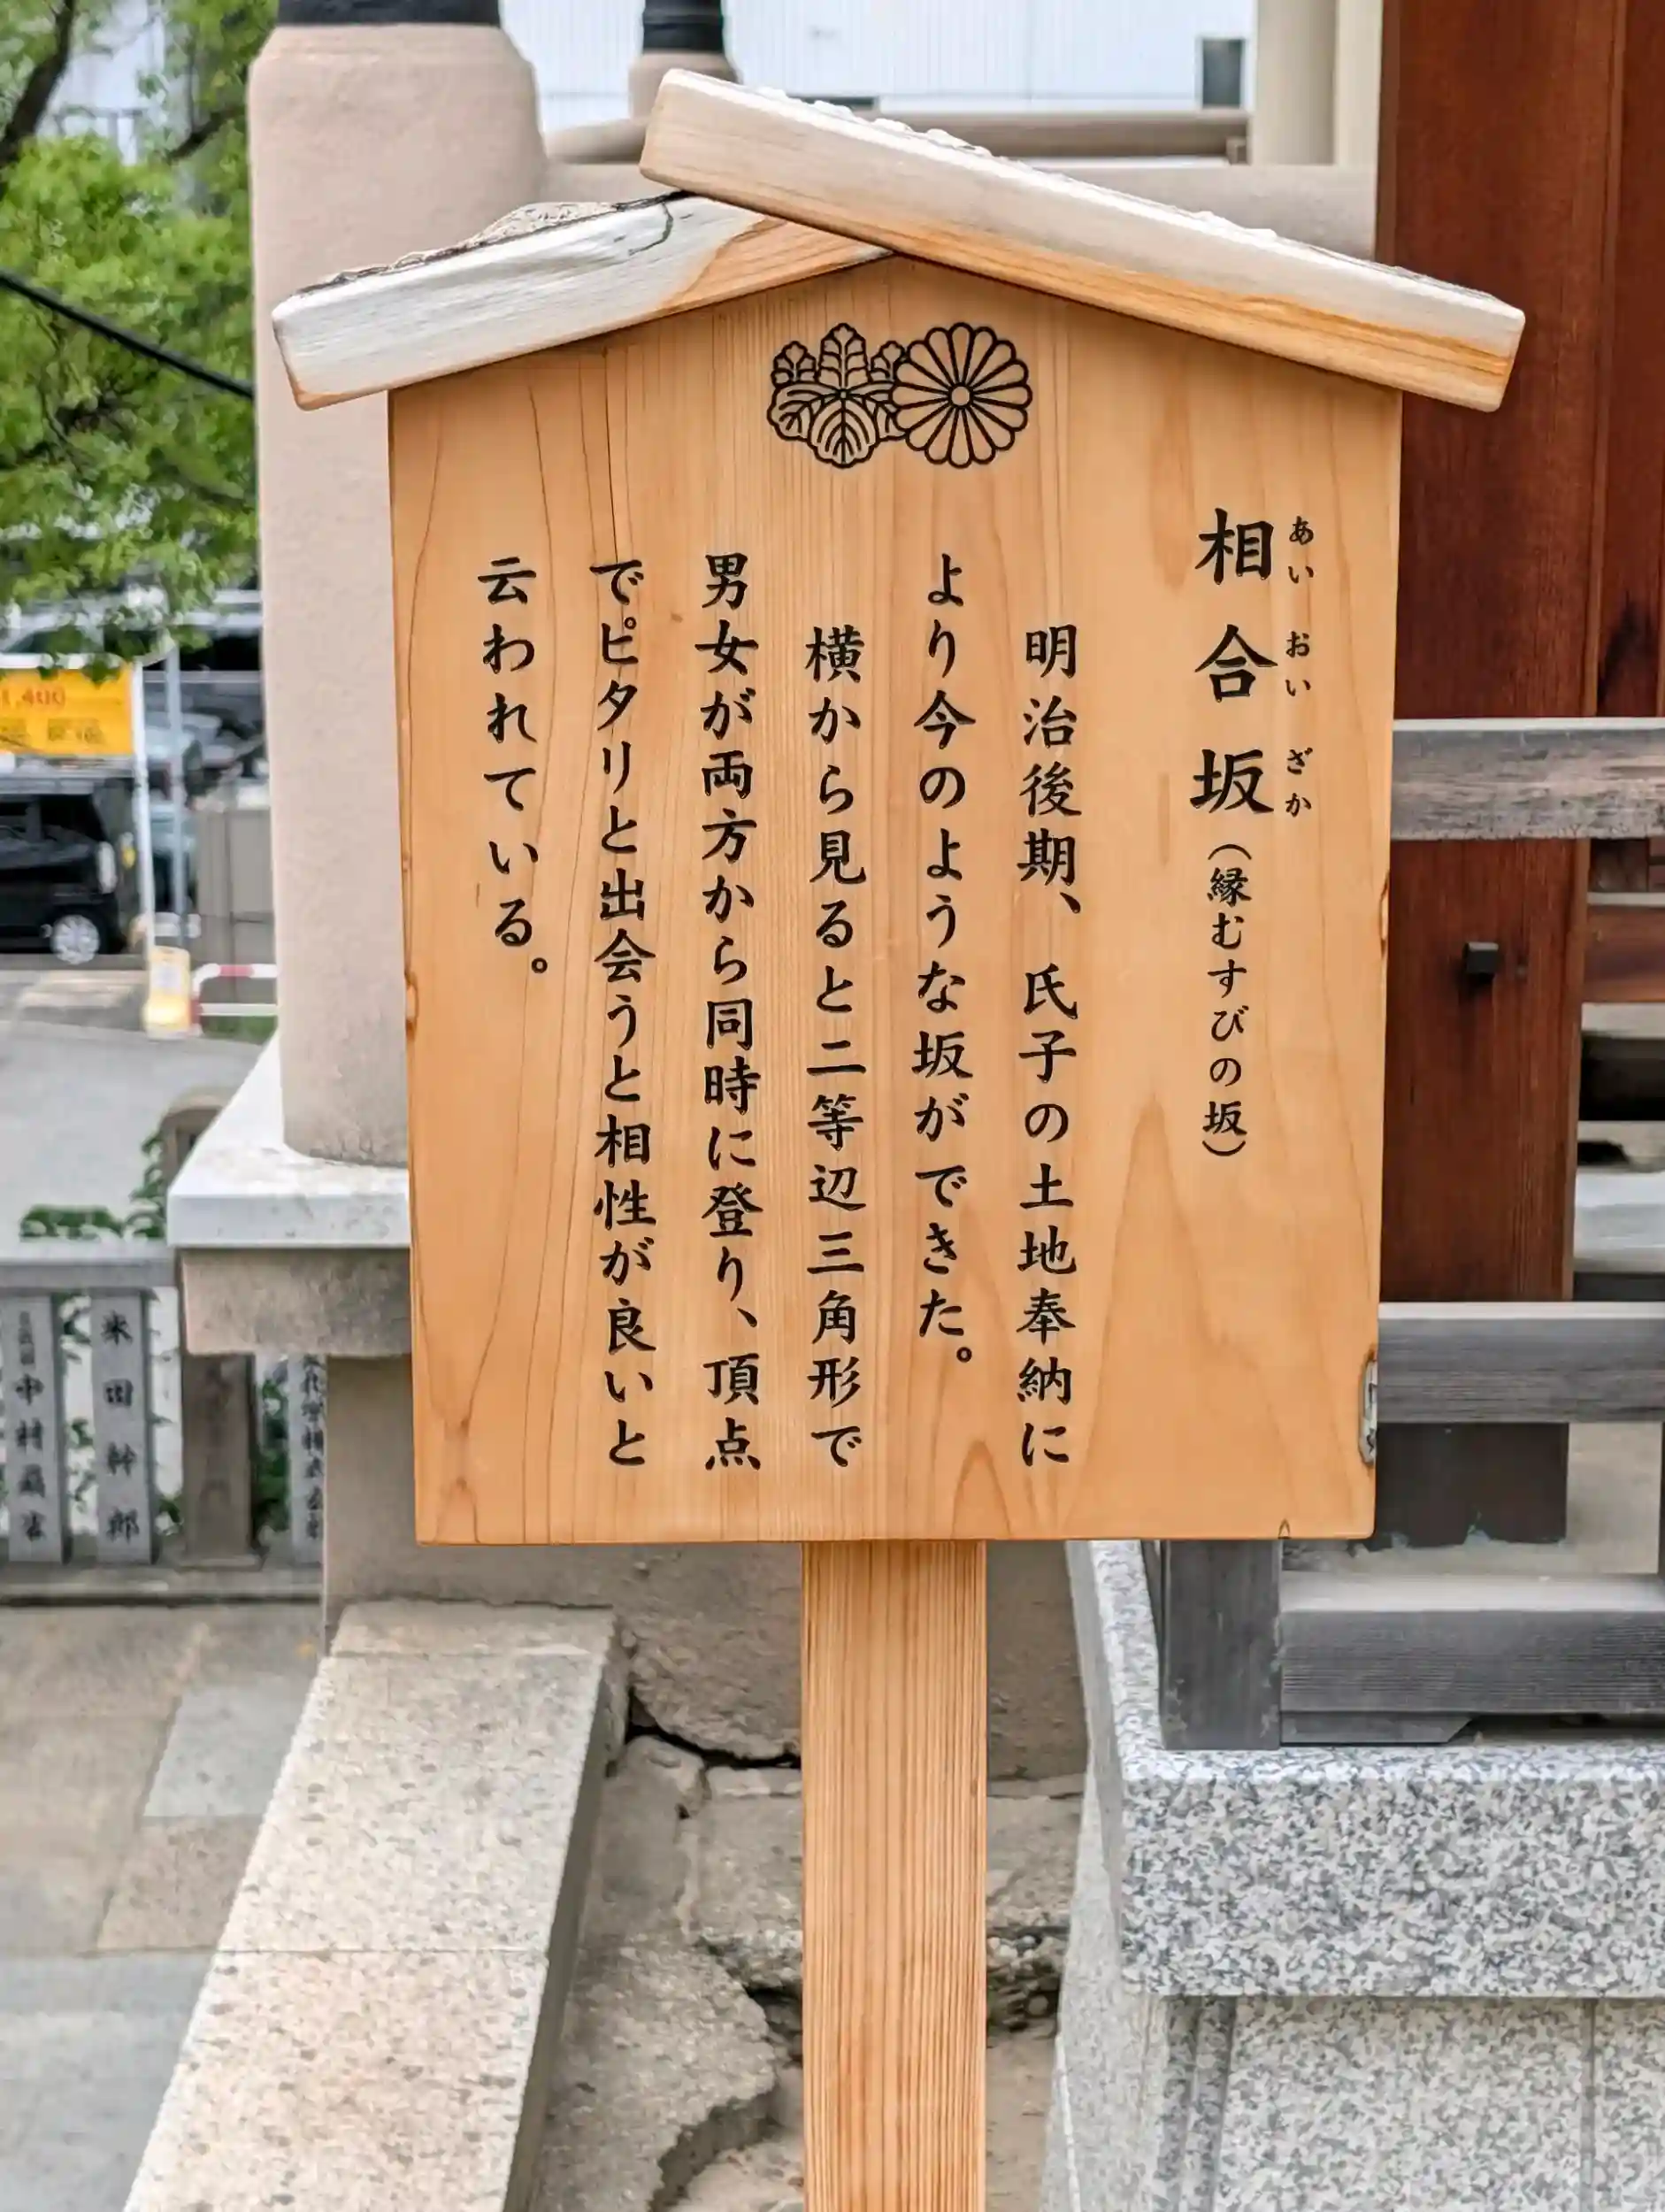 相合坂（縁むすびの坂）
あいおいざか
明治後期、氏子の土地奉納に
より今のような坂ができた。
横から見ると二等辺三角形で
男女が両方から同時に登り、頂点
でピタリと出会うと相性が良いと
云われている。
1,400
米田幹郎
中村